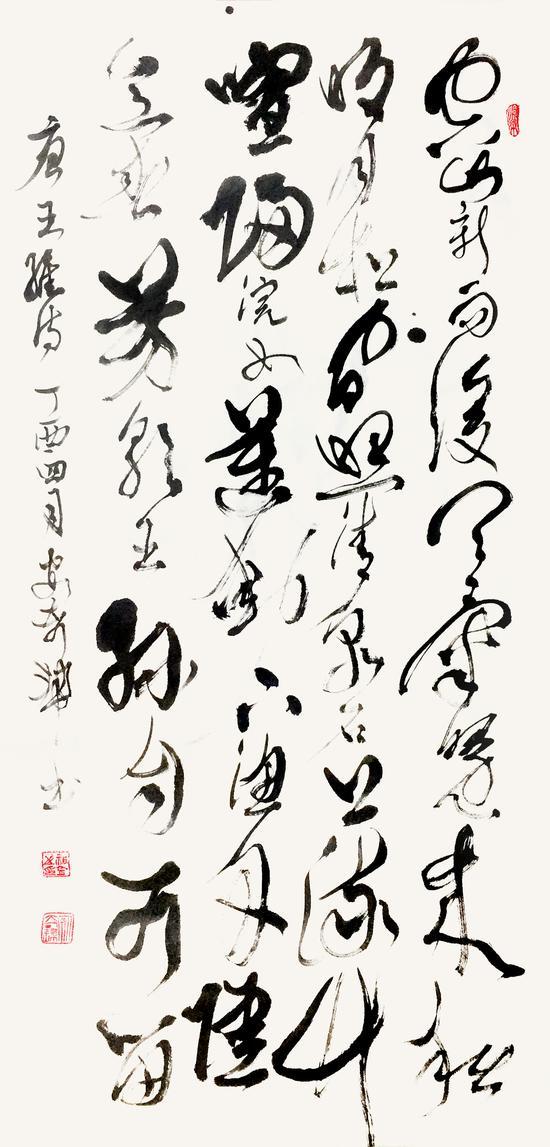 空山新雨後天氣晚來秋
明月松間照清泉石上流竹
喧歸浣女蓮動下漁舟隨
意春芳歇王孫自可留
唐王維詩 丁酉四月 書